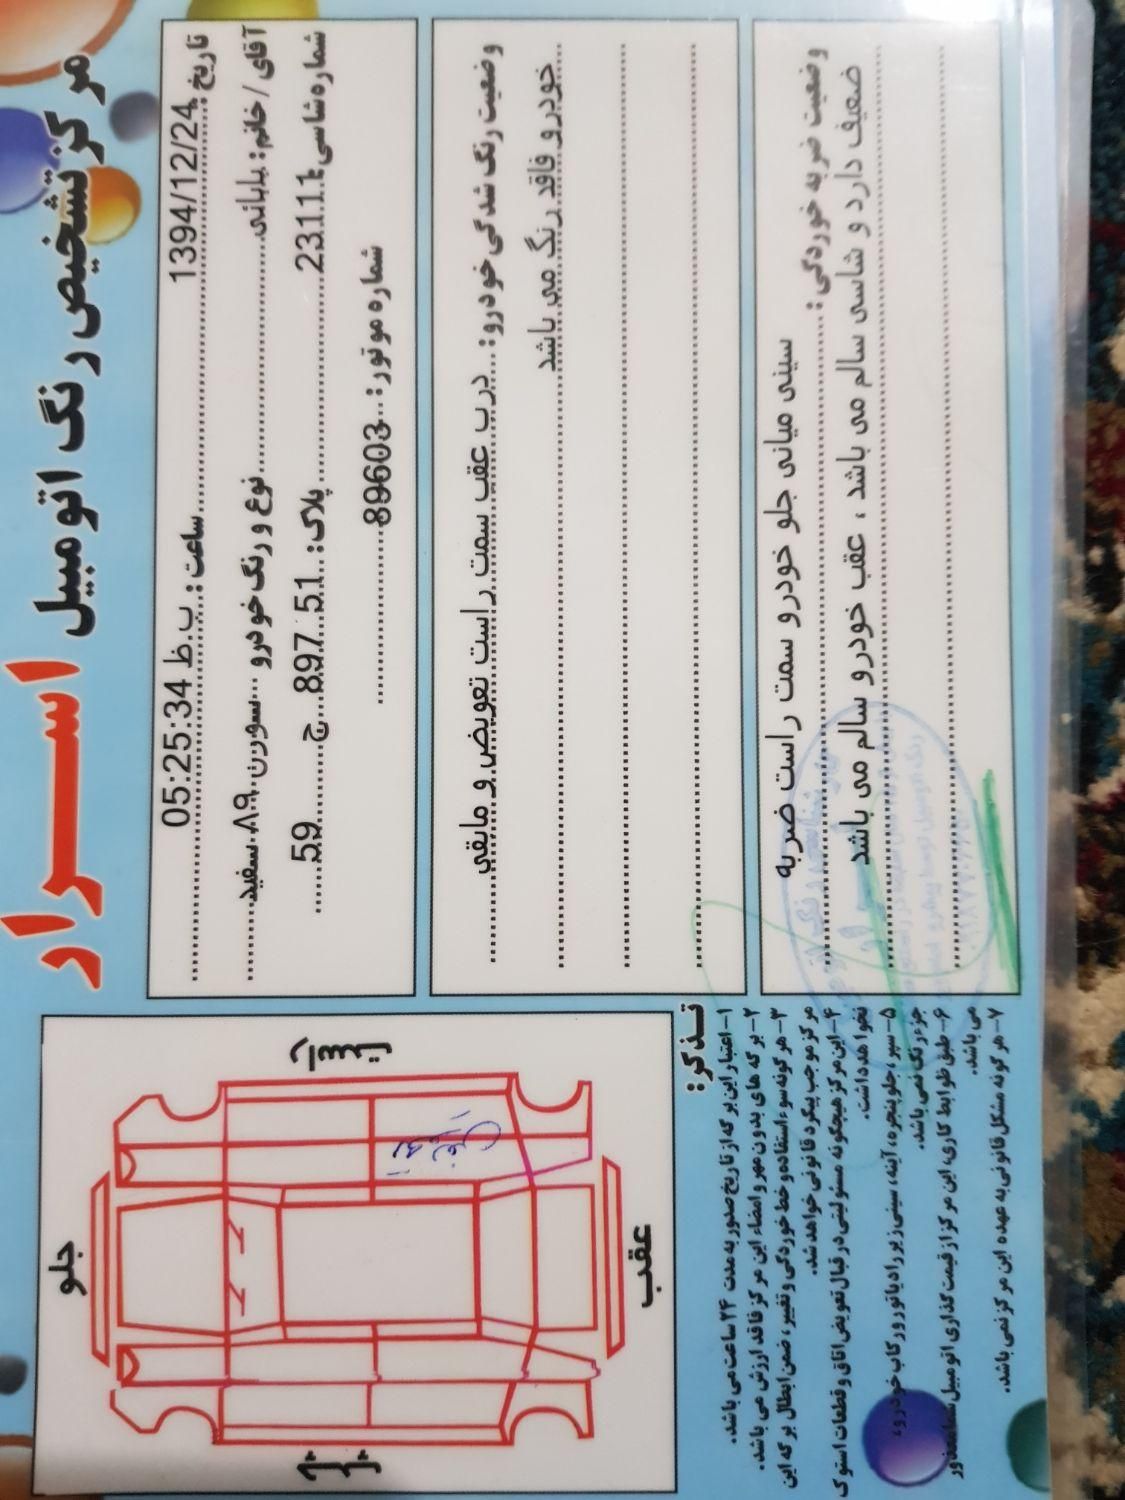 مرکز تشخیص رنگ اتومبیل اسرار
تاریخ: 1394/12/24 ساعت: 05:25:34 ب.ظ
آقای / خانم: بابائی نوع و رنگ خودرو سورن ۸۹ سفید
شماره شاسی: 23111 پلاک: 59 ج 897 51
شماره موتور: 89603
وضعیت رنگ شدگی خودرو: درب عقب سمت راست تعویض و مابقی
خودرو فاقد رنگ می باشد
وضعیت ضربه خوردگی: سینی میانی جلو خودرو سمت راست ضربه
ضعیف دارد و شاسی سالم می باشد ، عقب خودرو سالم می باشد
جلو
راست
چپ
عقب
تعویض
تذکر:
۱- اعتبار این برگه از تاریخ صدور به مدت ۲۴ ساعت می باشد.
۲- برگه های بدون مهر و امضاء این مرکز فاقد ارزش می باشد.
۳- هر گونه سوء استفاده و خط خوردگی و تغییر، ضمن ابطال برگه این
مرکز موجب پیگرد قانونی خواهد شد.
۴- این مرکز هیچگونه مسئولیتی در قبال تعویض اتاق و قطعات استوک
نخواهد داشت.
۵- سپر، جلو پنجره، آینه، سینی زیر رادیاتور و رکاب خودرو،
جزء رنگ نمی باشد.
۶- طبق ضوابط کاری، این مرکز از قیمت گذاری اتومبیل شما معذور
می باشد.
۷- هر گونه مشکل قانونی به عهده این مرکز نمی باشد.